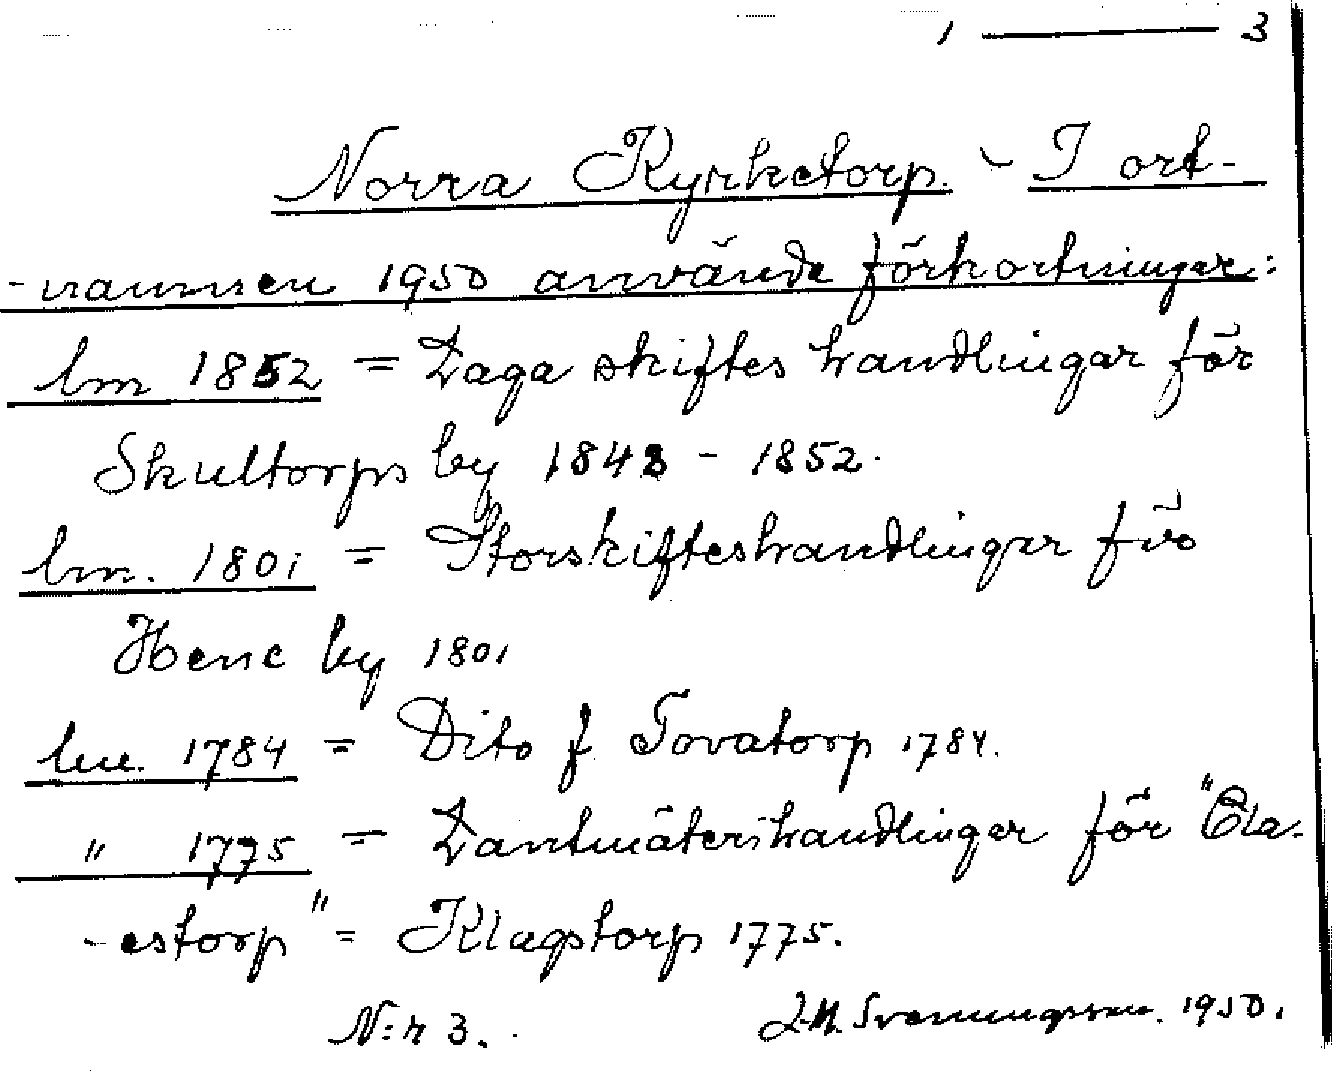 1 — 3
Norra Kyrketorp. - I ort-
-namnen 1950 använda förkortningar:
lm 1852 = Laga skiftes handlingar för
Skultorps by 1848 - 1852.
lm. 1801 = Storskifteshandlingar för
Hene by 1801
lm. 1784 = Dito f Tovatorp 1784.
" 1775 = Lantmäterihandlingar för "Cla-
-estorp" = Klagstorp 1775.
N:r 3. Svenningsson. 1950.